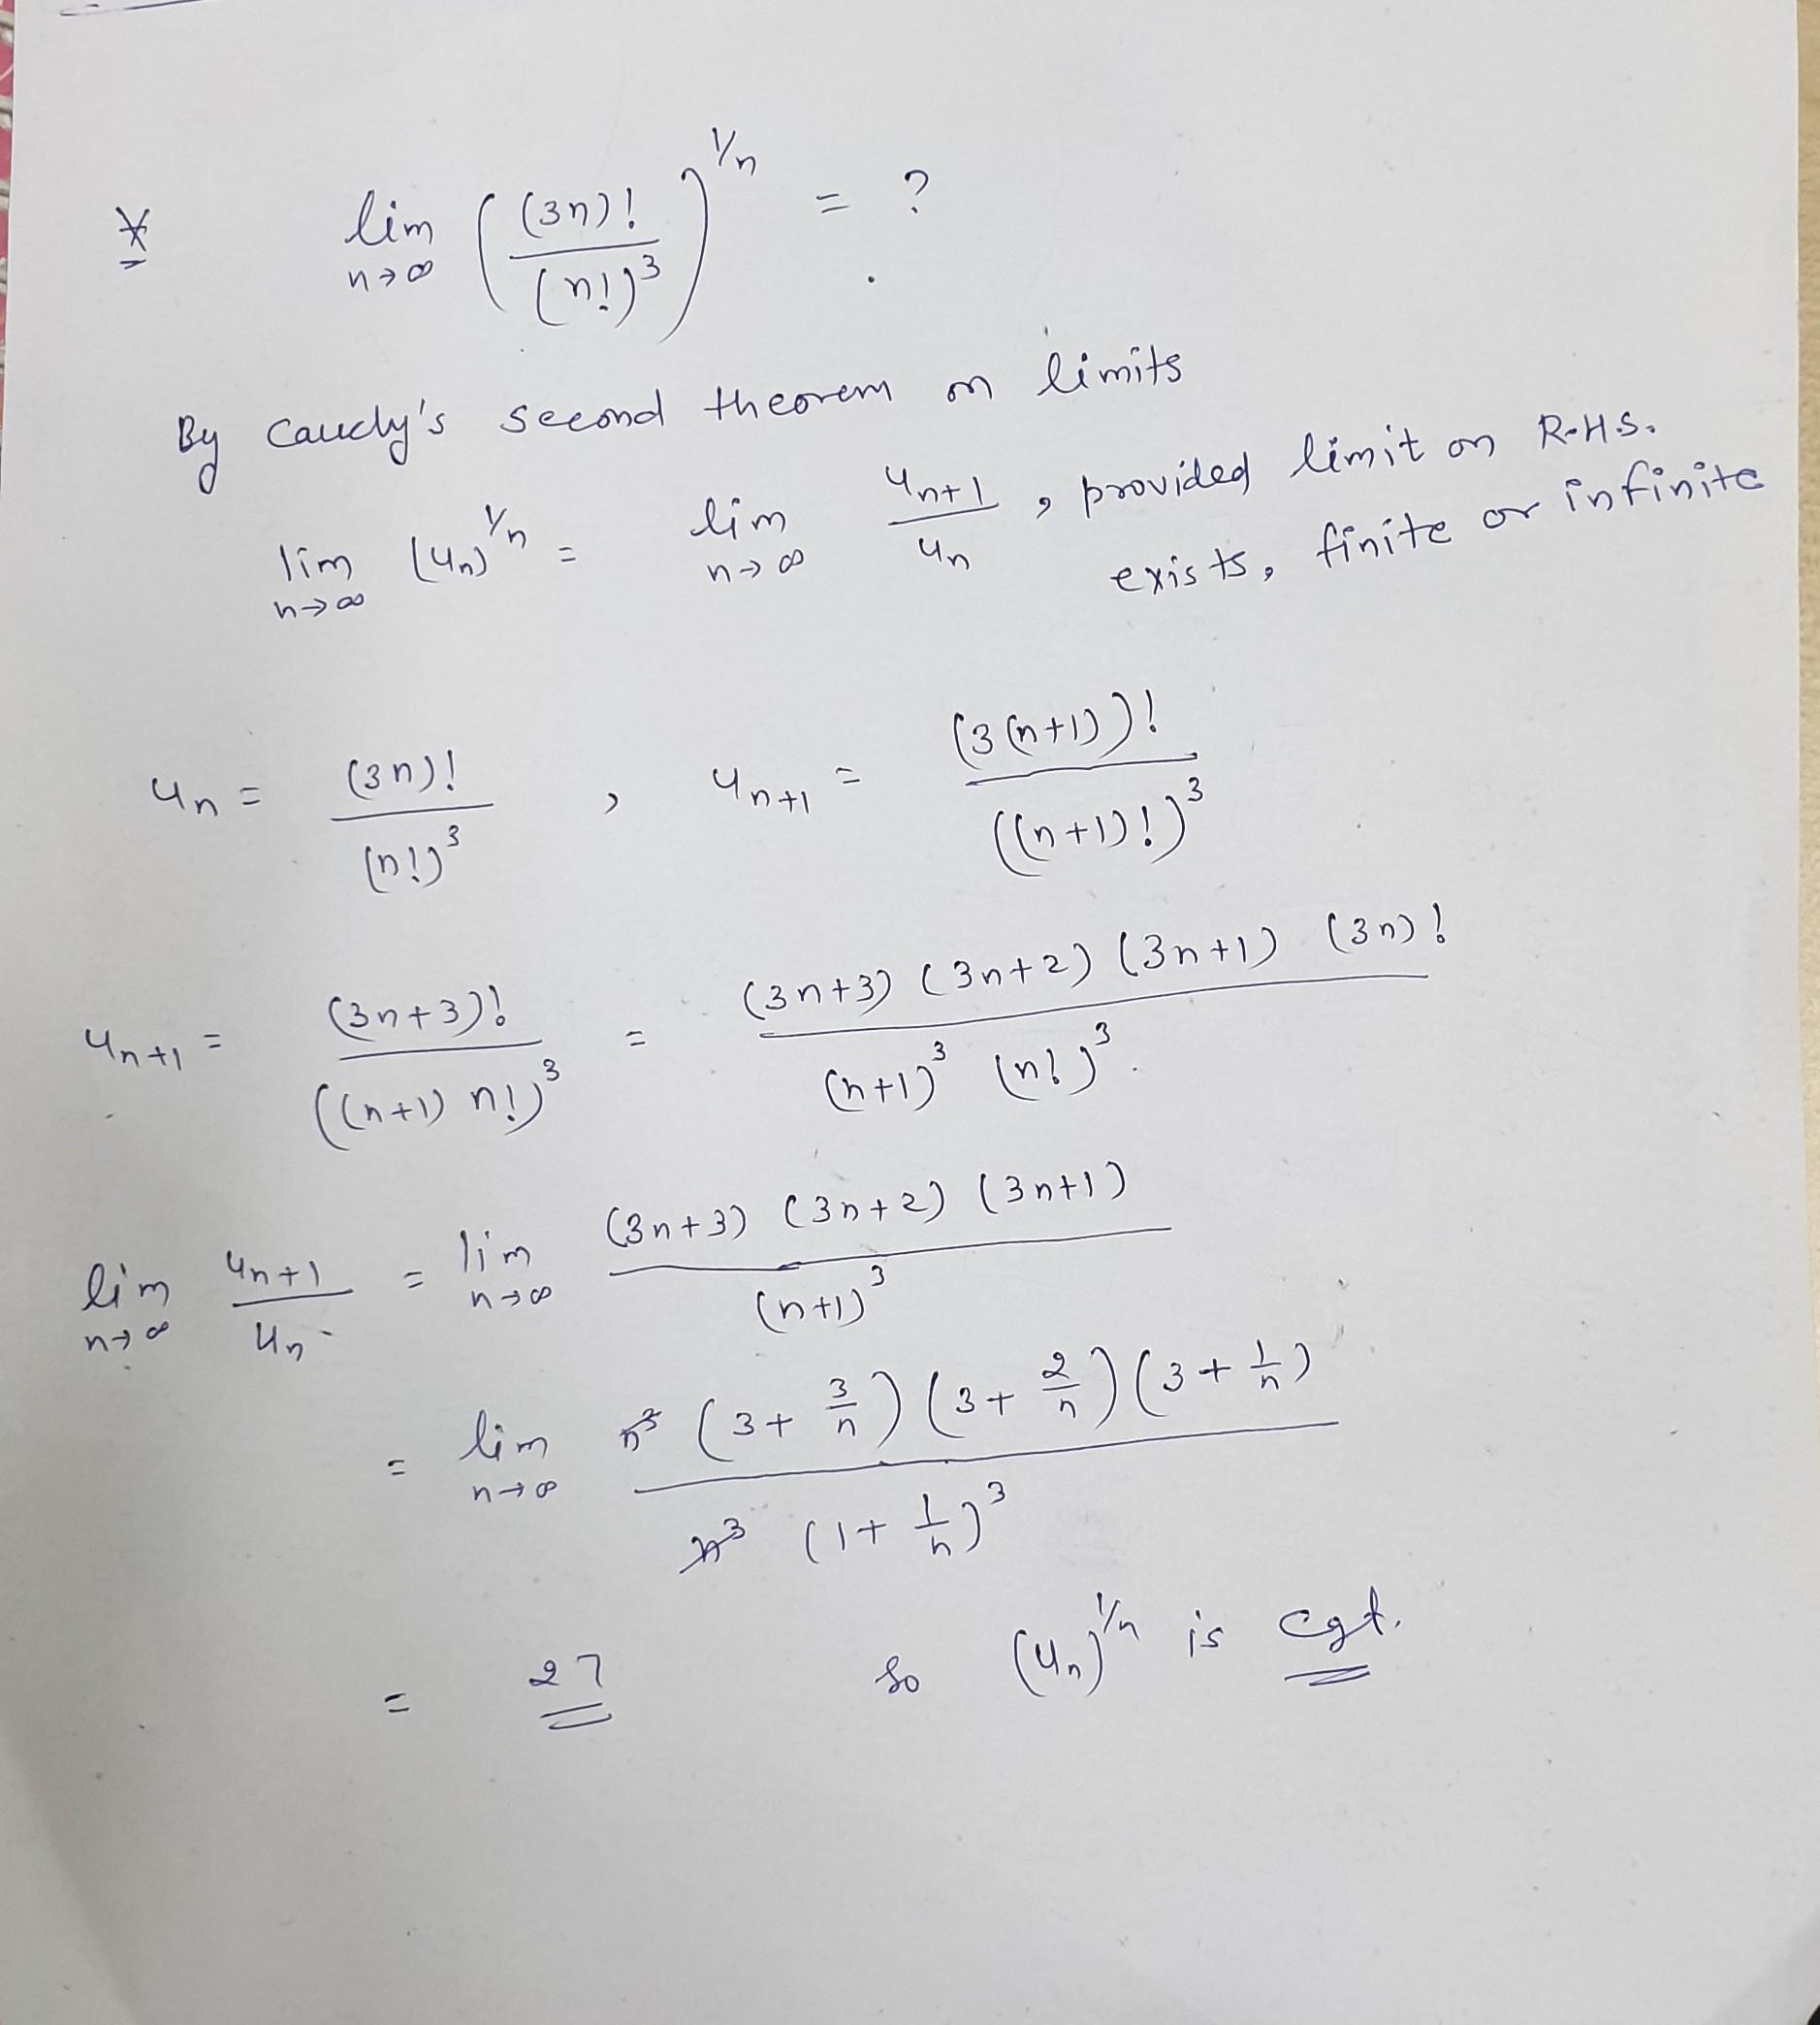 * lim n→∞ ((3n)! / (n!)^3)^1/n = ?
By Cauchy's second theorem on limits
lim n→∞ (un)^1/n = lim n→∞ un+1 / un , provided limit on R.H.S.
exists, finite or infinite
un = (3n)! / (n!)^3 , un+1 = (3(n+1))! / ((n+1)!)^3
un+1 = (3n+3)! / ((n+1) n!)^3 = (3n+3) (3n+2) (3n+1) (3n)! / (n+1)^3 (n!)^3.
lim n→∞ un+1 / un = lim n→∞ (3n+3) (3n+2) (3n+1) / (n+1)^3
= lim n→∞ n^3 (3 + 3/n) (3 + 2/n) (3 + 1/n) / n^3 (1 + 1/n)^3
= 27 so (un)^1/n is cgt.